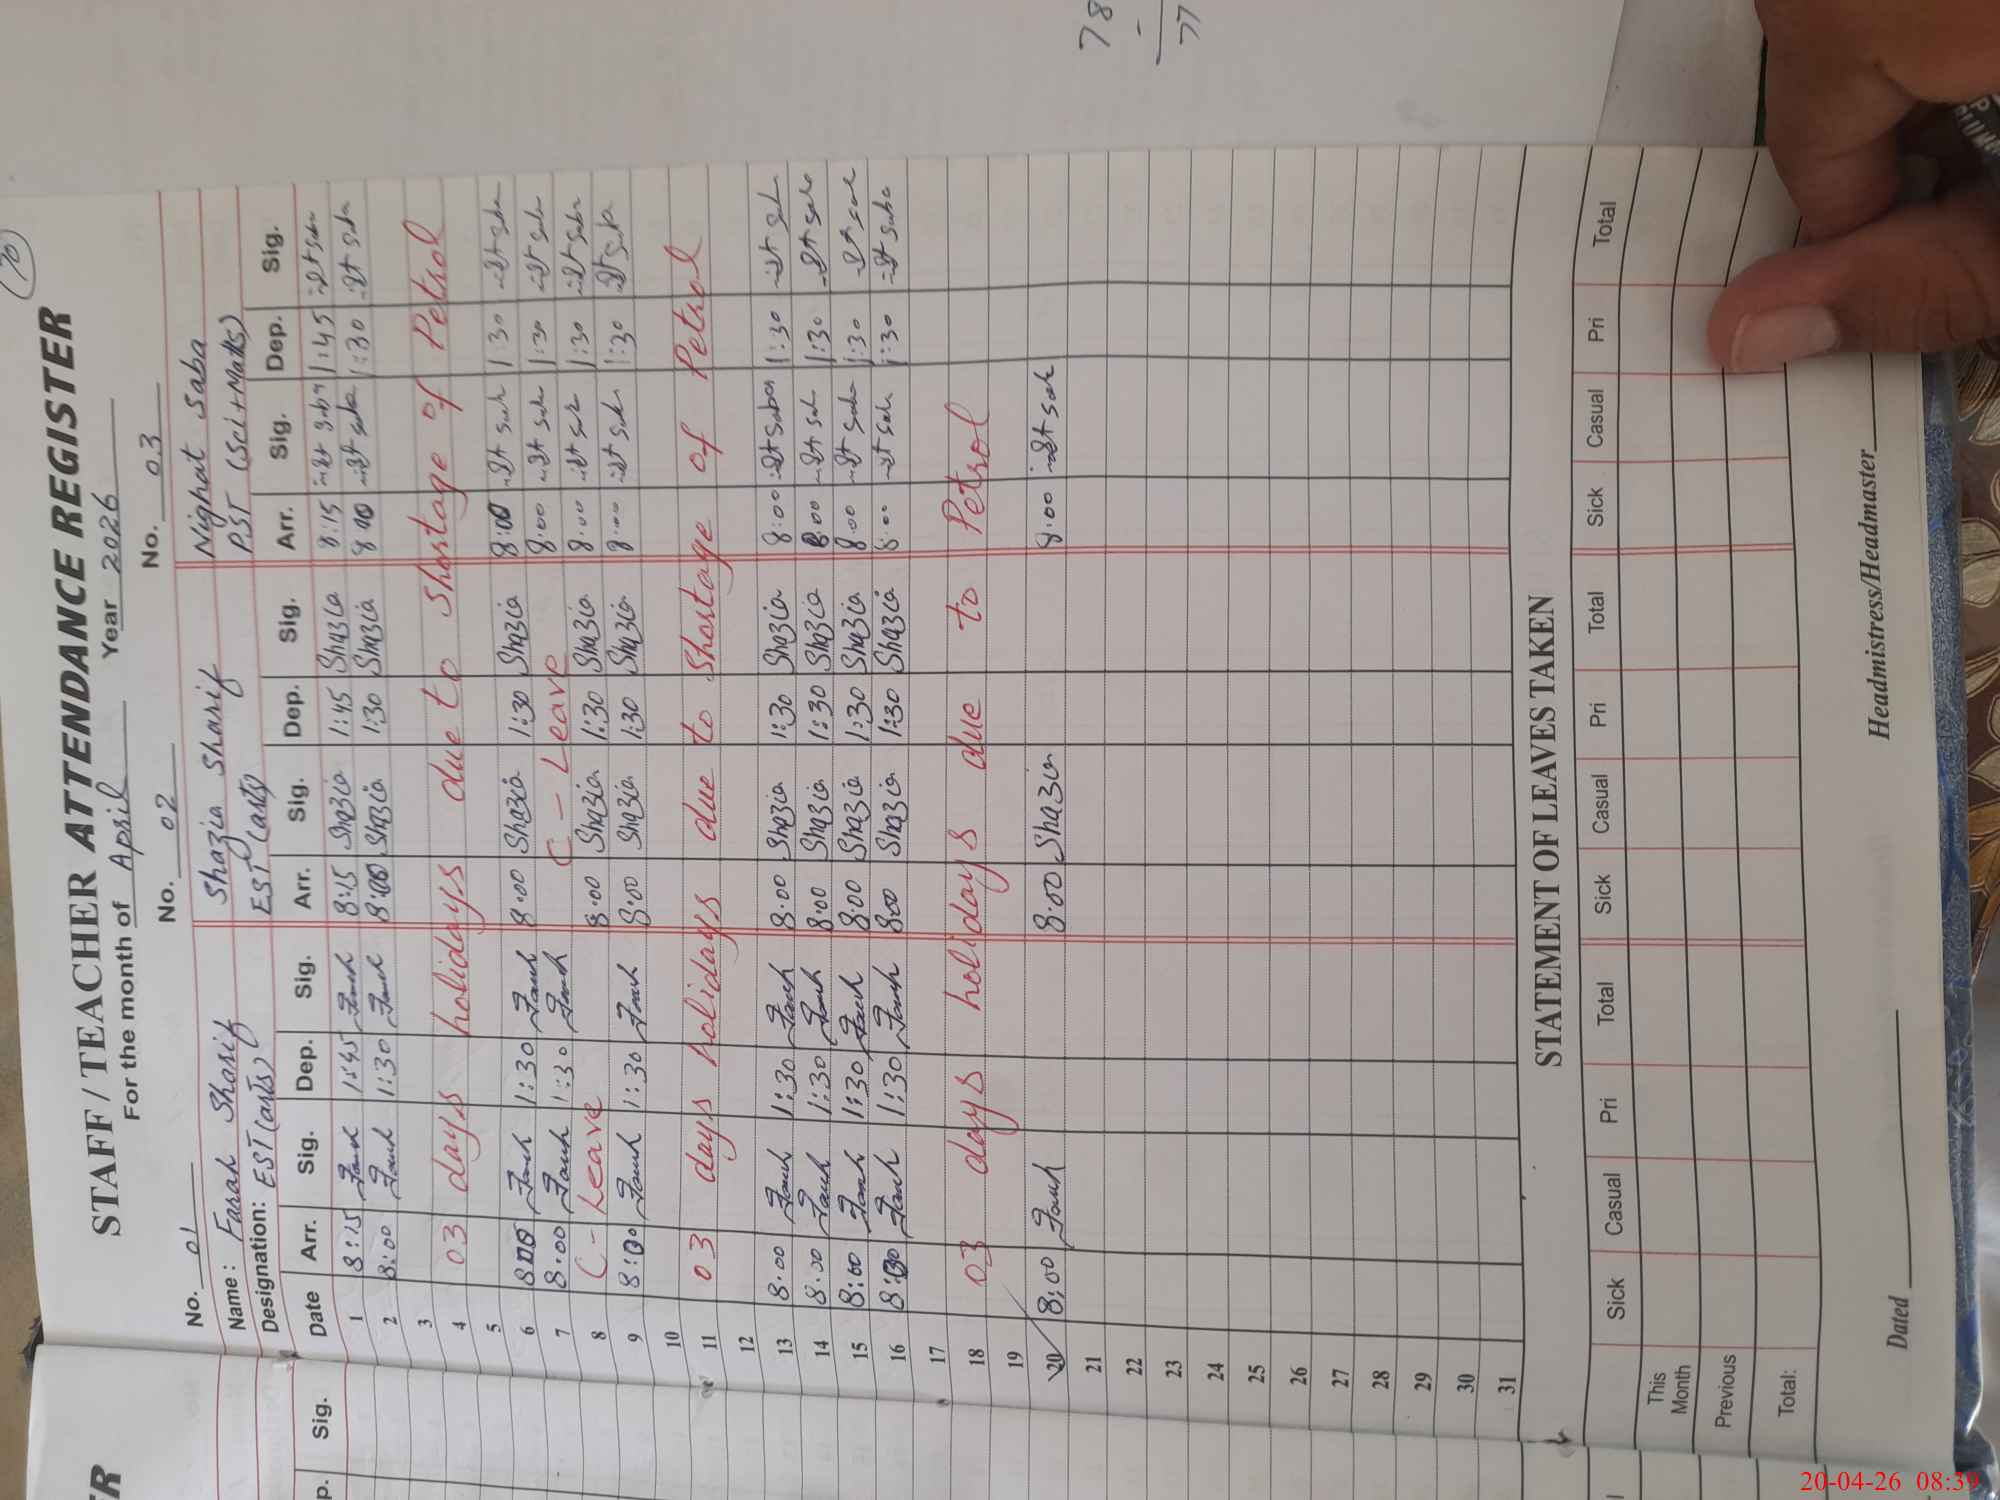 70
STAFF / TEACHER ATTENDANCE REGISTER
For the month of April Year 2026
No. 01 No. 02 No. 03
Name: Farah Sharif Shazia Sharif Nighat Saba
Designation: EST (arts) EST (arts) PST (Sci+Maths)
Date Arr. Sig. Dep. Sig. Arr. Sig. Dep. Sig. Arr. Sig. Dep. Sig.
1 8:15 Farah 1:45 Farah 8:15 Shazia 1:45 Shazia 8:15 1:45
2 8:00 Farah 1:30 Farah 8:00 Shazia 1:30 Shazia 8:00 1:30
3
4 03 days holidays due to Shortage of Petrol
5
6 8:00 Farah 1:30 Farah 8:00 Shazia 1:30 Shazia 8:00 1:30
7 8:00 Farah 1:30 Farah C - Leave 8:00 1:30
8 C - Leave 8:00 Shazia 1:30 Shazia 8:00 1:30
9 8:00 Farah 1:30 Farah 8:00 Shazia 1:30 Shazia 8:00 1:30
10
11 03 days holidays due to Shortage of Petrol
12
13 8:00 Farah 1:30 Farah 8:00 Shazia 1:30 Shazia 8:00 1:30
14 8:00 Farah 1:30 Farah 8:00 Shazia 1:30 Shazia 8:00 1:30
15 8:00 Farah 1:30 Farah 8:00 Shazia 1:30 Shazia 8:00 1:30
16 8:00 Farah 1:30 Farah 8:00 Shazia 1:30 Shazia 8:00 1:30
17
18 03 days holidays due to Petrol
19
20 8:00 Farah 8:00 Shazia 8:00
21
22
23
24
25
26
27
28
29
30
31
STATEMENT OF LEAVES TAKEN
Sick Casual Pri Total Sick Casual Pri Total Sick Casual Pri Total
This Month
Previous
Total:
Dated Headmistress/Headmaster
78
-
77
p. Sig.
20-04-26 08:39